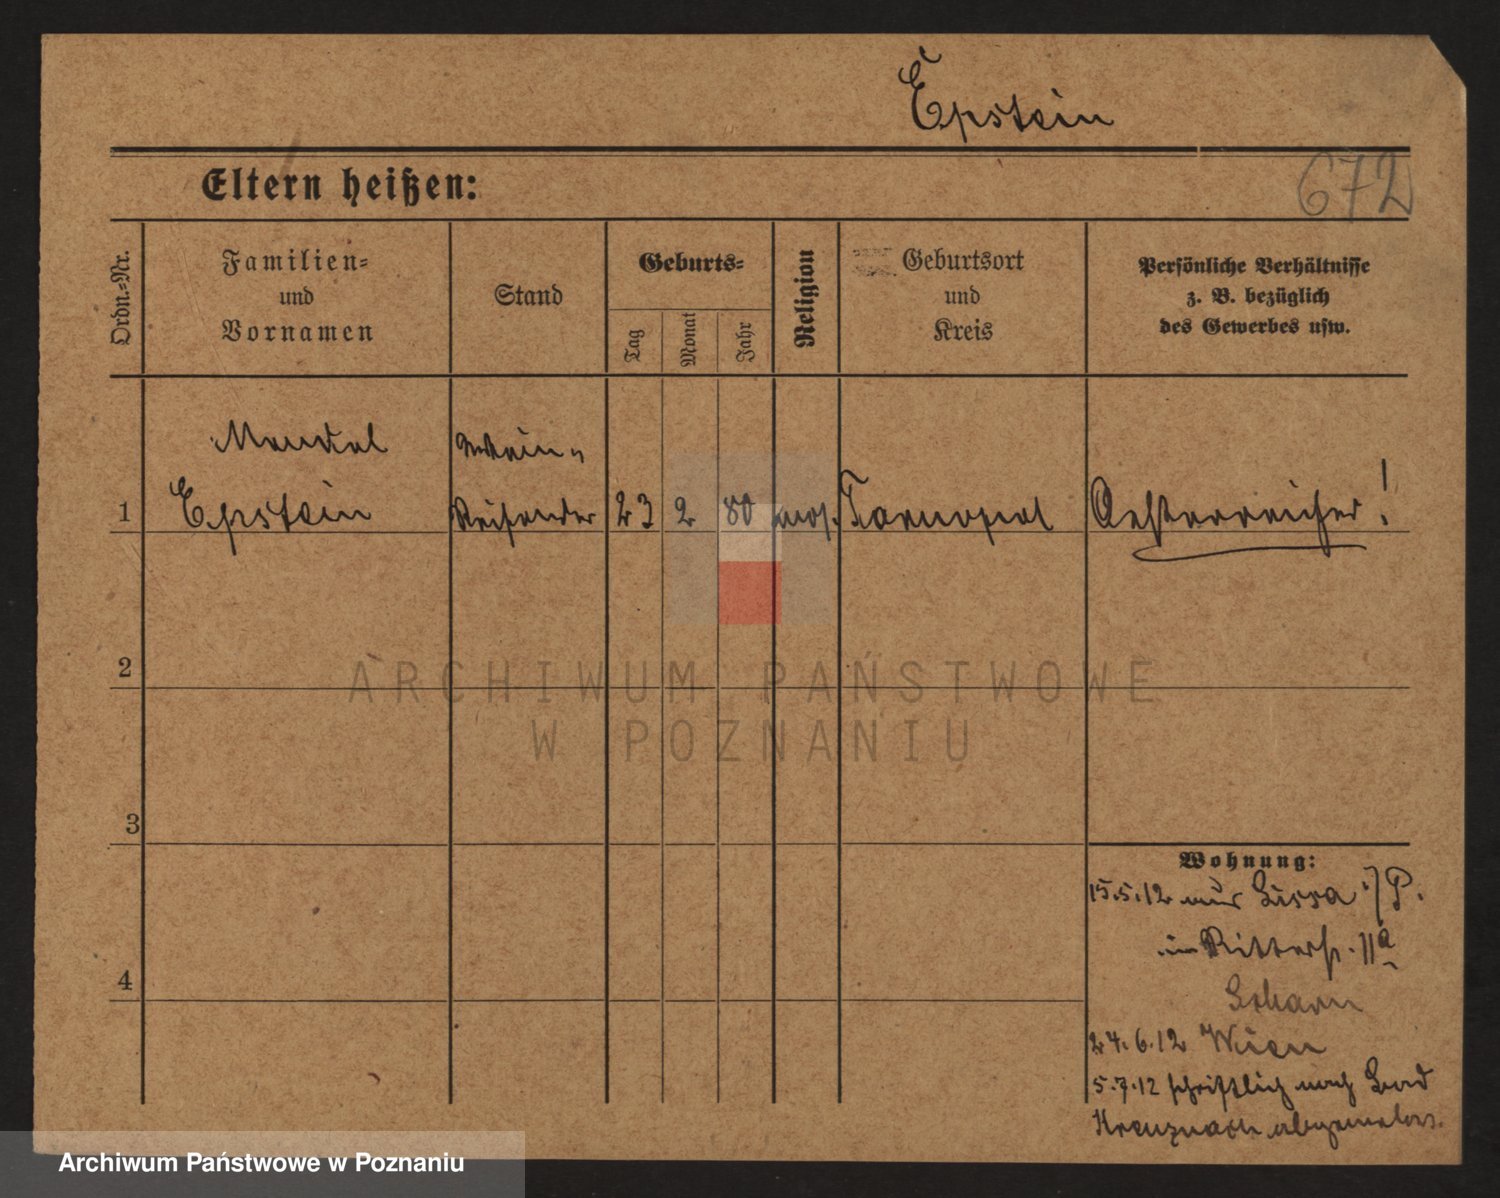 Epstein
Eltern heißen:
672
Ordn.-Nr.
Familien-
und
Vornamen
Stand
Geburts-
Tag
Monat
Jahr
Religion
Geburtsort
und
Kreis
Persönliche Verhältnisse
z. B. bezüglich
des Gewerbes usw.
1
Mendel
Epstein
Wein-
Reisender
23
2
80
mos.
Tarnopol
Oesterreicher!
2
3
4
Wohnung:
15.5.12 aus Lissa i/P.
Ritterstr. 11a
24.6.12 Wien
5.7.12 schriftlich nach Bad
Kreuznach abgemeldet.
ARCHIWUM PAŃSTWOWE
W POZNANIU
Archiwum Państwowe w Poznaniu